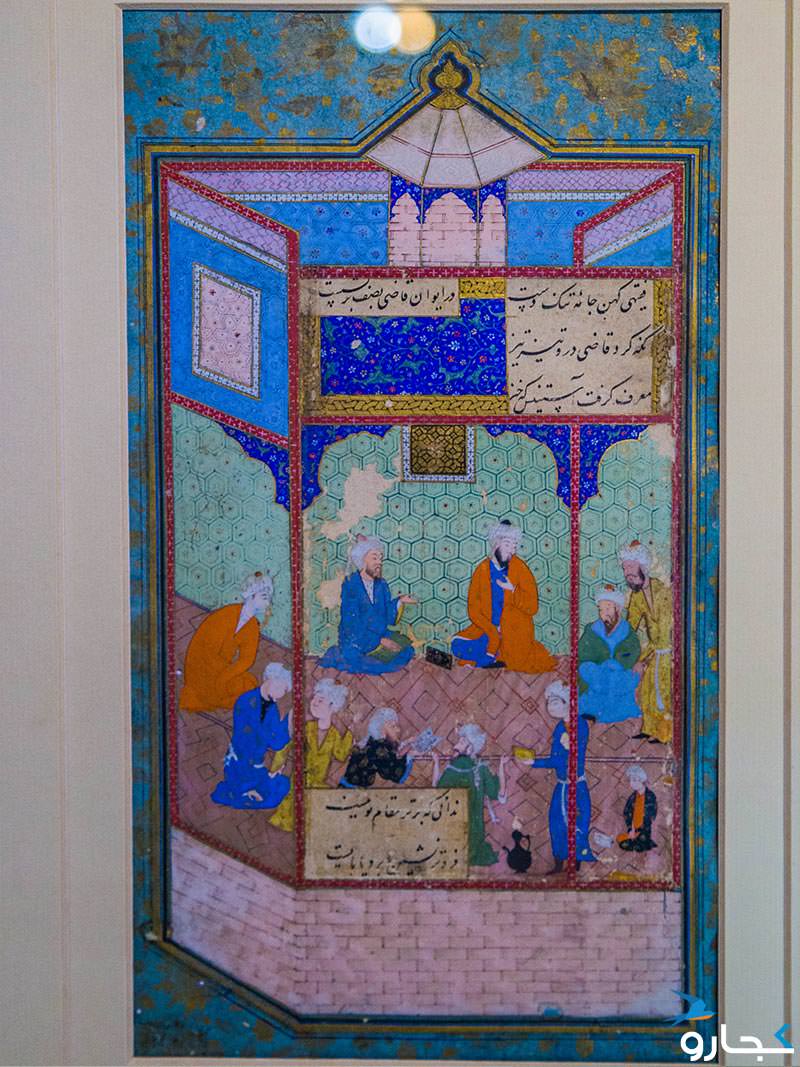 فقیهی کهن جامهٔ تنگ دست
در ایوان قاضی بصف بر نشست
نگه کرد قاضی در و تیز تیز
معرف گرفت آستینش که خیز
ندانی که برتر مقام تو نیست
فروتر نشین یا برو یا بایست
کجارو